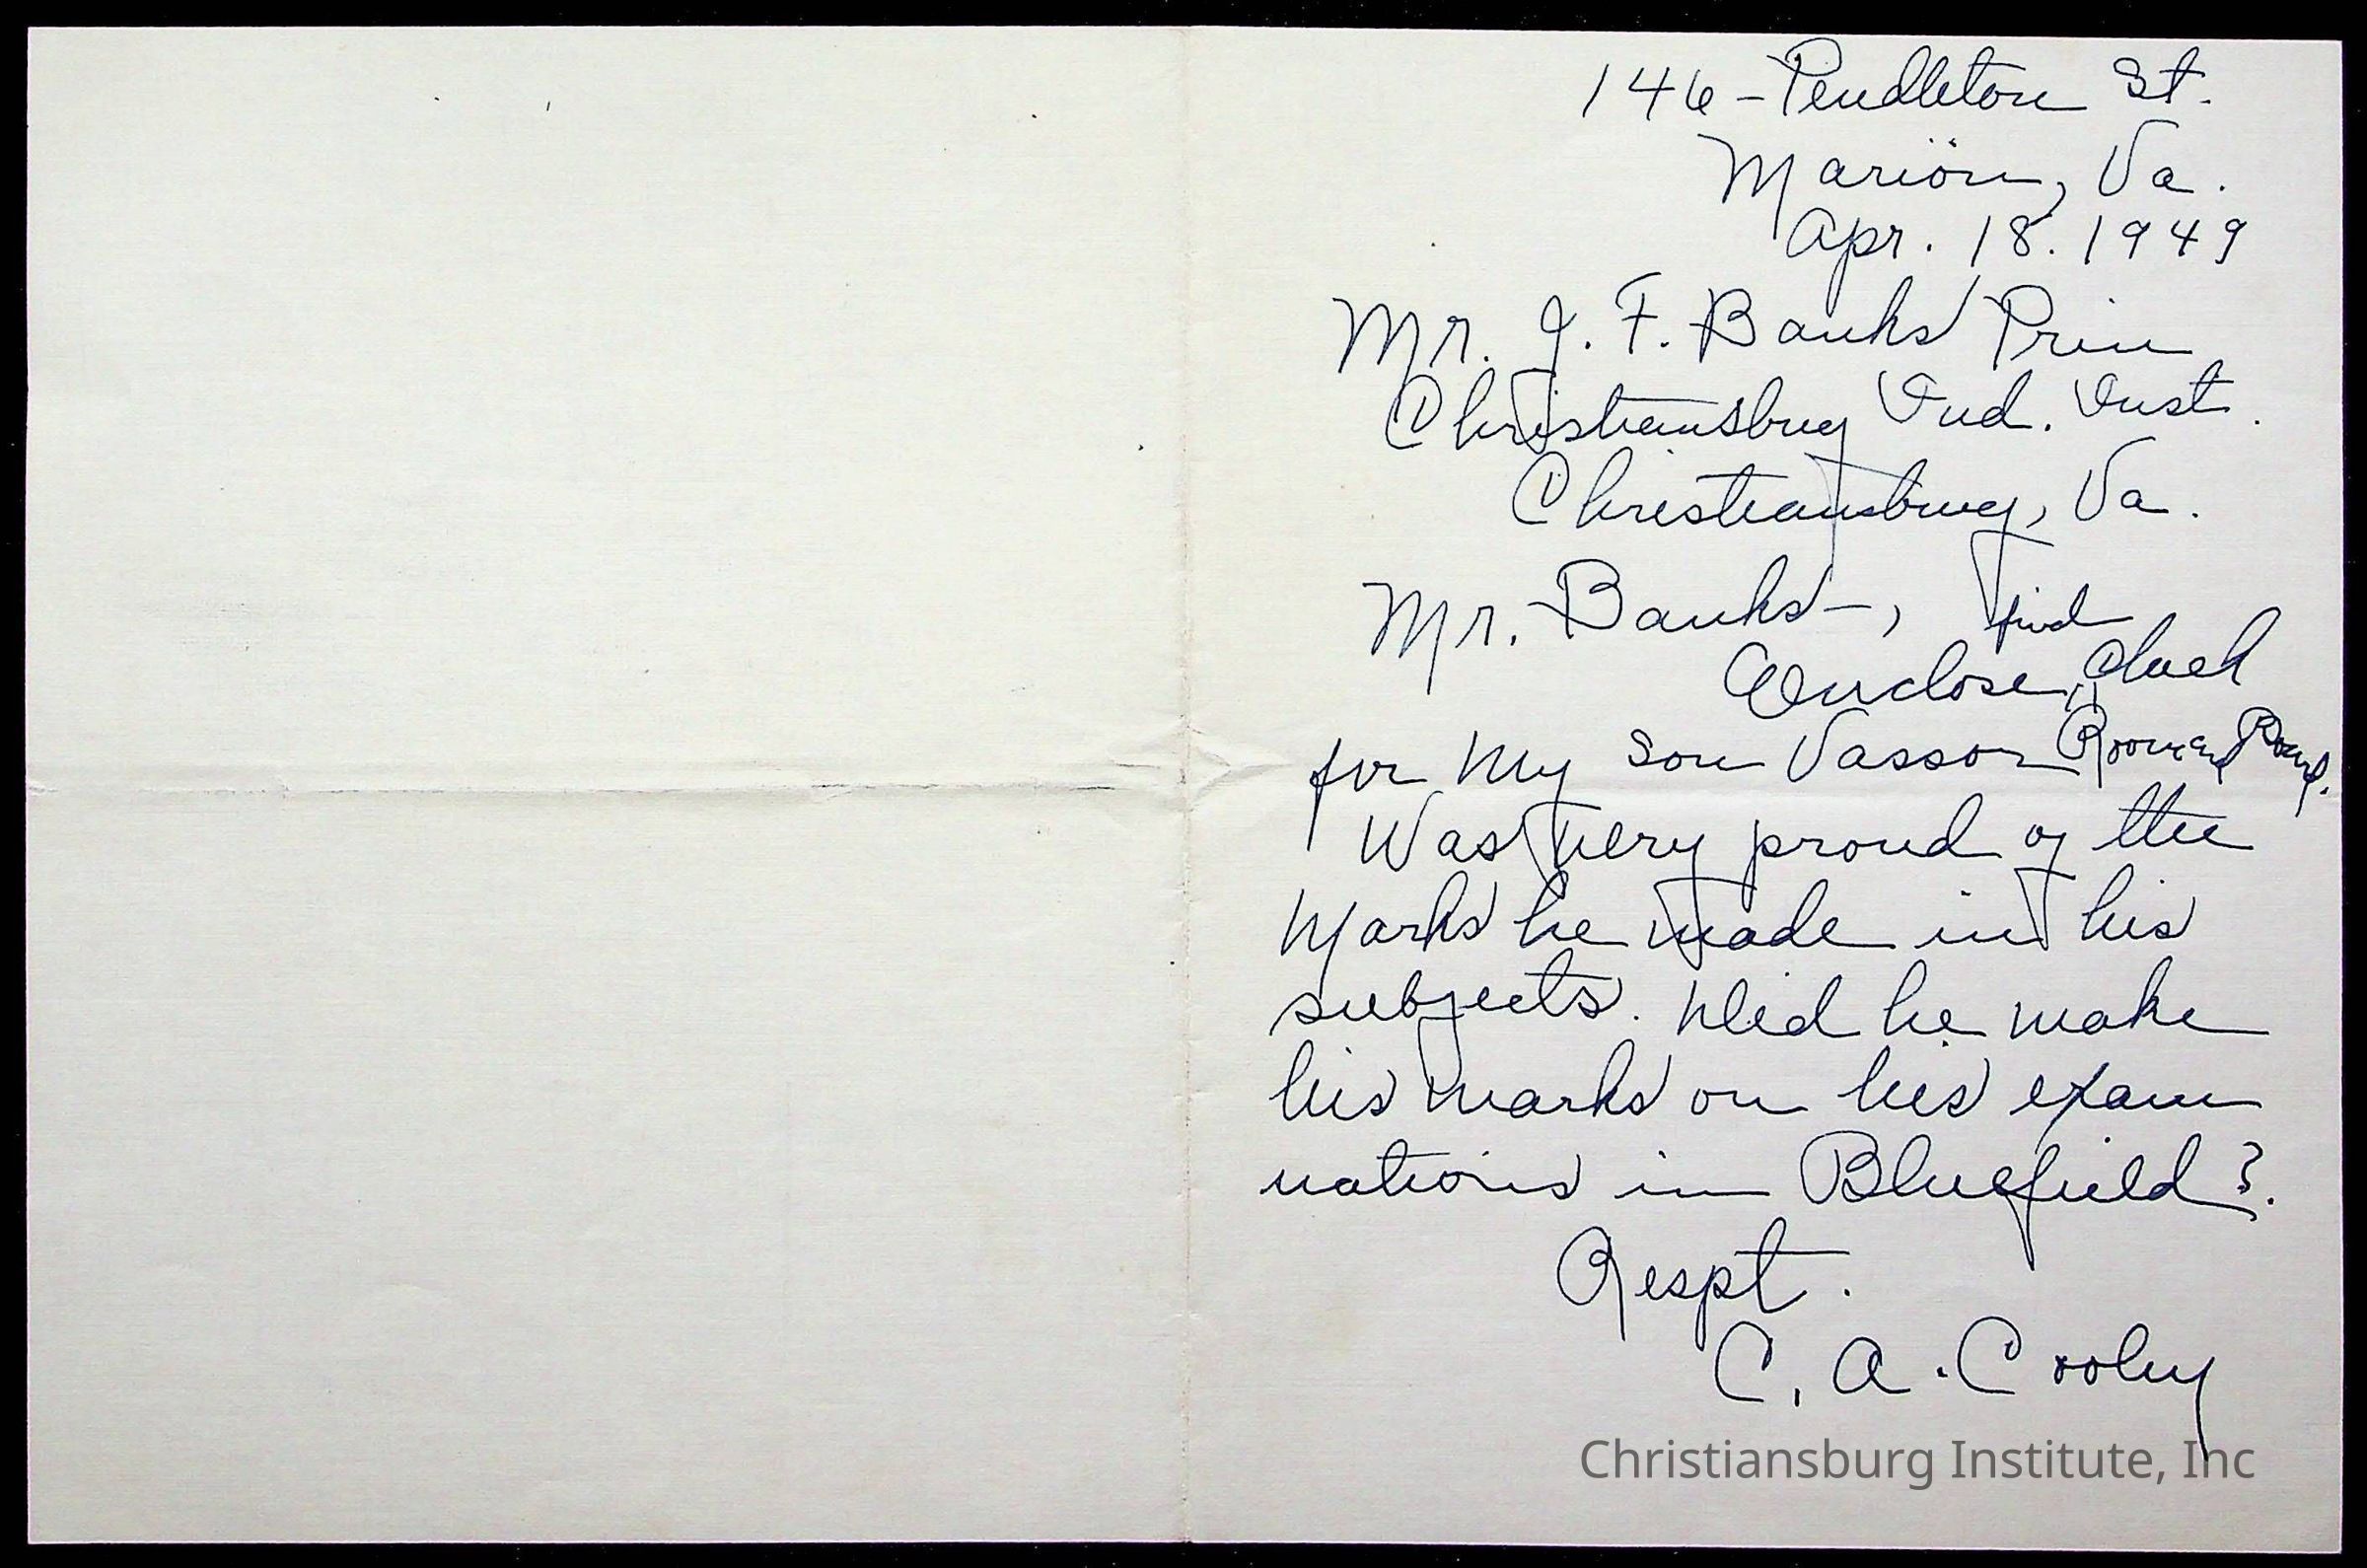 146 - Pendleton St.
Marion, Va.
Apr. 18. 1949
Mr. J. F. Banks Prin
Christiansbug Ind. Inst.
Christiansburg, Va.
Mr. Banks -, find
Enclose, check
for My son Vassor Room and Board.
Was very proud of the
Marks he made in his
subjects. Did he make
his marks on his exam
nations in Bluefield?.
Respt.
C. A. Cooley
Christiansburg Institute, Inc